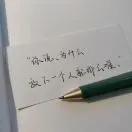 “你说，为什么
放下一个人就那么难。